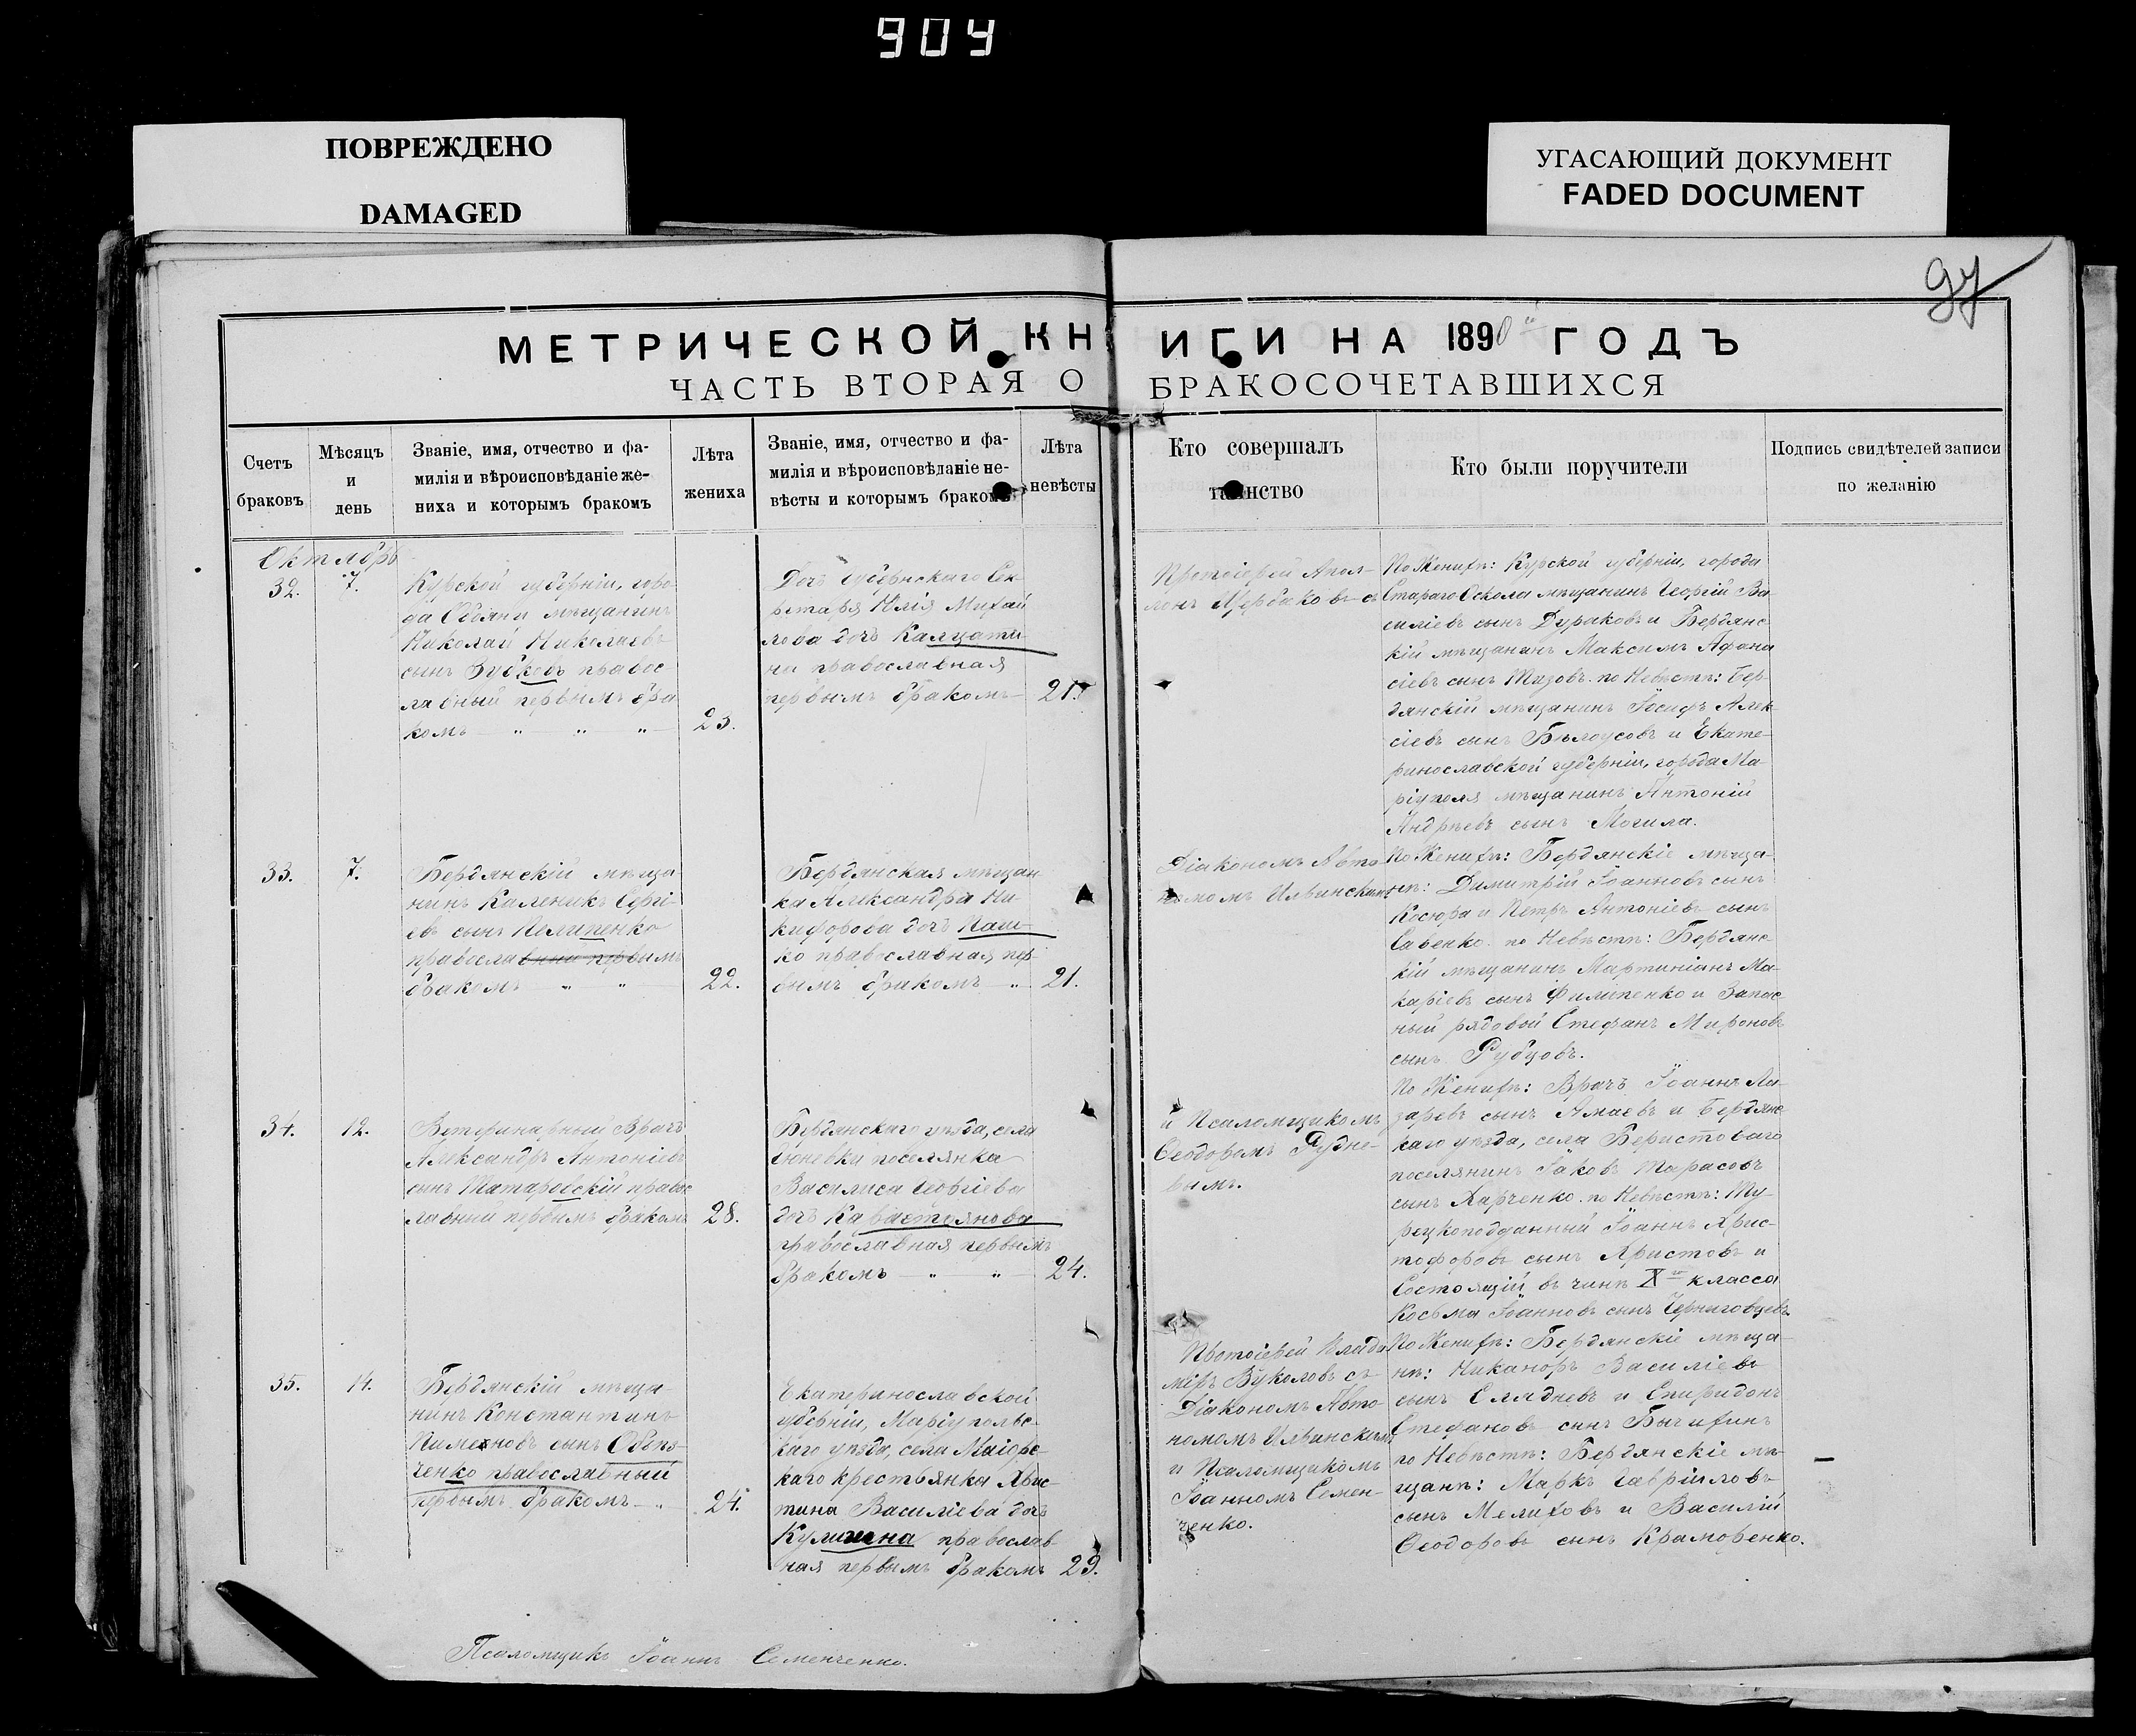 904
ПОВРЕЖДЕНО
DAMAGED
УГАСАЮЩИЙ ДОКУМЕНТ
FADED DOCUMENT
97
МЕТРИЧЕСКОЙ КНИГИ НА 1890 ГОДЪ
ЧАСТЬ ВТОРАЯ О БРАКОСОЧЕТАВШИХСЯ
Счетъ
браковъ
Мѣсяцъ
и
день
Званіе, имя, отчество и фа-
милія и вѣроисповѣданіе же-
ниха и которымъ бракомъ
Лѣта
жениха
Званіе, имя, отчество и фа-
милія и вѣроисповѣданіе не-
вѣсты и которымъ бракомъ
Лѣта
невѣсты
Кто совершалъ
таинство
Кто были поручители
Подпись свидѣтелей записи
по желанію
Октябрь
32.
7.
Курской губерніи, горо-
да Обояни мѣщанинъ
Николай Николаевъ
сынъ Зубковъ правос
лавный первымъ бра
комъ — " — " — "
23.
Дочь губернскаго Сек-
ретаря Юлія Михай
лова дочь Калцати
на православная
первымъ бракомъ—
21.
Протоіерей Апол-
лонъ Щербаковъ съ
По Женихѣ: Курской губерніи, города
Стараго Оскола мѣщанинъ Георгій Ва
силіевъ сынъ Дураковъ и Бердянс
кій мѣщанинъ Максимъ Афана
сіевъ сынъ Тизовъ. по Невѣстѣ: Бер-
дянскій мѣщанинъ Іосифъ Алек-
сіевъ сынъ Бѣлоусовъ и Екате-
ринославской губерніи, города Ма-
ріуполя мѣщанинъ Антоній
Андреевъ сынъ Могила.
33.
7.
Бердянскій мѣща
нинъ Каленикъ Сергі-
евъ сынъ Пелипенко
православный первымъ
бракомъ — " — "
22.
Бердянская мѣщан
ка Александра Ни-
кифорова дочь Паш-
ко православная пер-
вымъ бракомъ — "
21.
Діакономъ Авто-
номомъ Ильинскимъ
По Женихѣ: Бердянскіе мѣща-
не: Димитрій Іоанновъ сынъ
Косюра и Петръ Антоніевъ сынъ
Савенко. по Невѣстѣ: Бердянс-
кій мѣщанинъ Мартиніанъ Ма-
каріевъ сынъ Филипенко и Запас
ный рядовой Стефанъ Мироновъ
сынъ Рубцовъ.
34.
12.
Ветеринарный Врачъ
Александръ Антоніевъ
сынъ Татаровскій правос
лавный первымъ бракомъ
28.
Бердянскаго уѣзда, села
поселянка
Василиса Георгіева
дочь Кавастоянова
православная первымъ
бракомъ — " — "
24.
и Псаломщикомъ
Ѳеодоромъ Рудне-
вымъ.
По Женихѣ: Врачъ Іоаннъ Ла-
заревъ сынъ Амаевъ и Бердянс
каго уѣзда, села Берестоваго
поселянинъ Іаковъ Тарасовъ
сынъ Харченко. по Невѣстѣ: Ту-
рецкоподданный Іоаннъ Хрис-
тофоровъ сынъ Христовъ и
Состоящій въ чинѣ X го класса
Косьма Іоанновъ сынъ Черниговцевъ.
35.
14.
Бердянскій мѣща-
нинъ Константинъ
сынъ
ченко православный
первымъ бракомъ — "
24.
Екатеринославской
губерніи, Маріупольс-
каго уѣзда, села Маіорс-
каго крестьянка Хрис-
тина Василіева дочь
православ
ная первымъ бракомъ
29.
Протоіерей Влади
міръ Вуколовъ съ
Діакономъ Авто-
номомъ Ильинскимъ
и Псаломщикомъ
Іоанномъ Семен-
ченко.
По Женихѣ: Бердянскіе мѣща-
не: Никаноръ Василіевъ
сынъ Слядневъ и Спиридонъ
Стефановъ сынъ Бычихинъ
по Невѣстѣ: Бердянскіе мѣ-
щане: Маркъ Гавріиловъ
сынъ Мелиховъ и Василій
Ѳеодоровъ сынъ Краморенко.
Псаломщикъ Іоаннъ Семенченко.